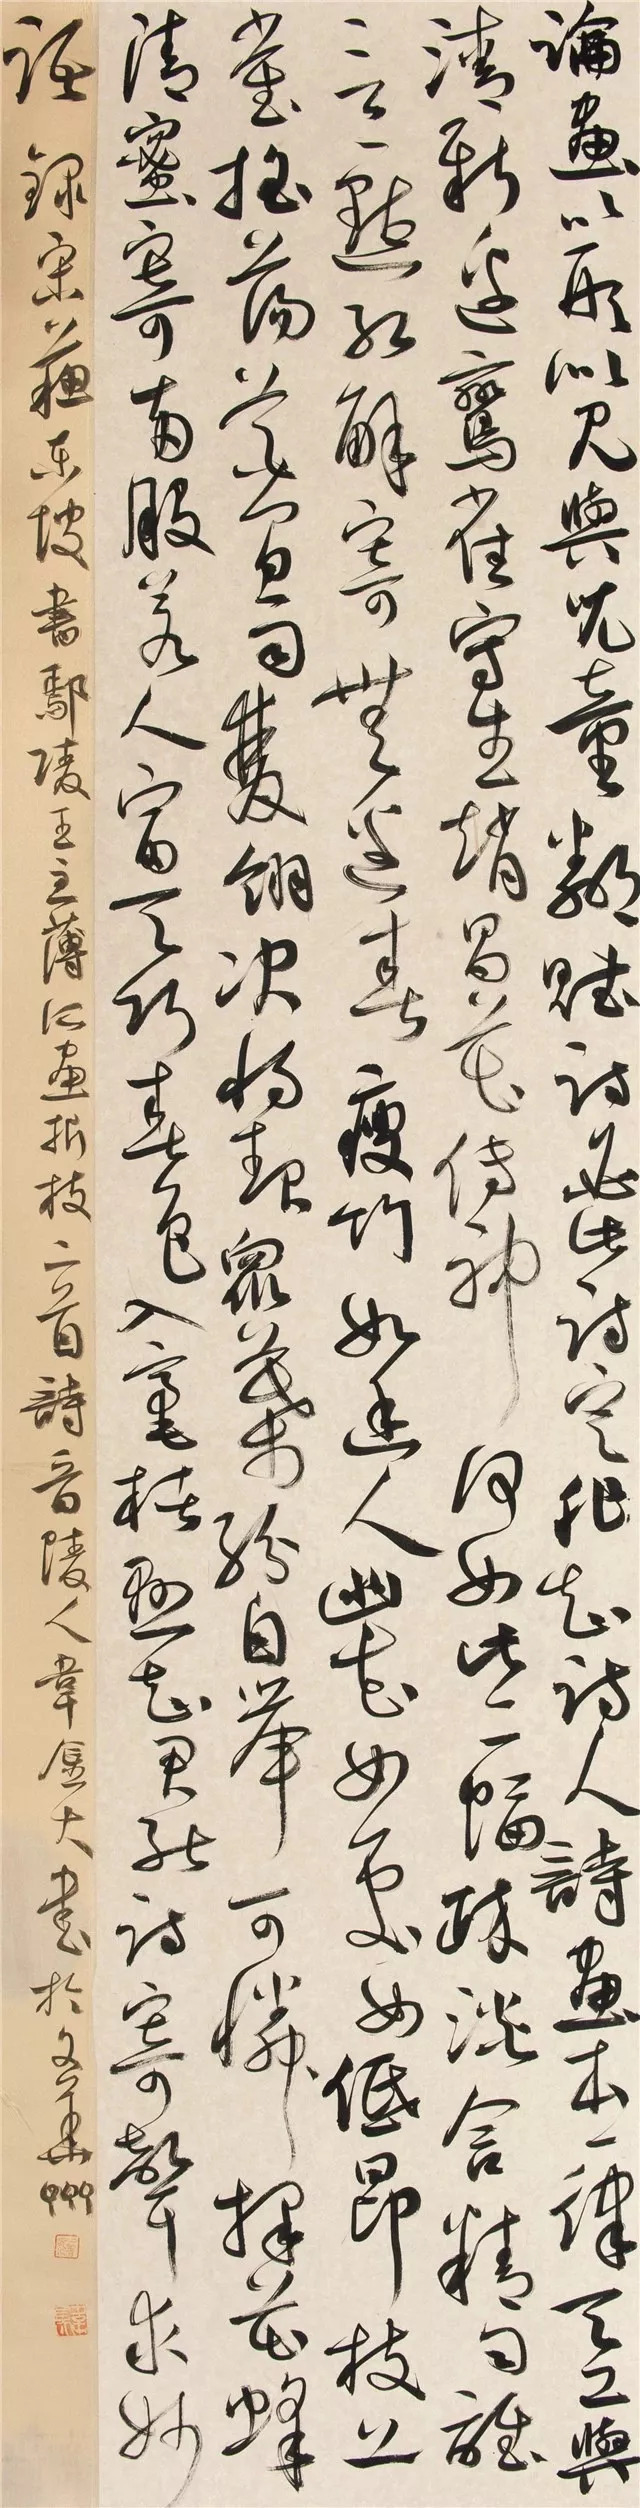 論畫以形似見與兒童鄰賦詩必此詩定非知詩人詩畫本一律天工與
清新邊鸞雀寫生趙昌花傳神何如此二幅疏淡含精勻誰
言一點紅解寄無邊春瘦竹如幽人幽花如處女低昂枝上
雀搖蕩花間雨雙翎決將起眾葉紛自舉可憐採花蜂
清蜜寄兩股若人富天巧春色入毫楮懸知君能詩寄聲求妙
語 錄宋蘇東坡書鄢陵王主薄所畫折枝二首詩晉陵人韋金大書於文華州